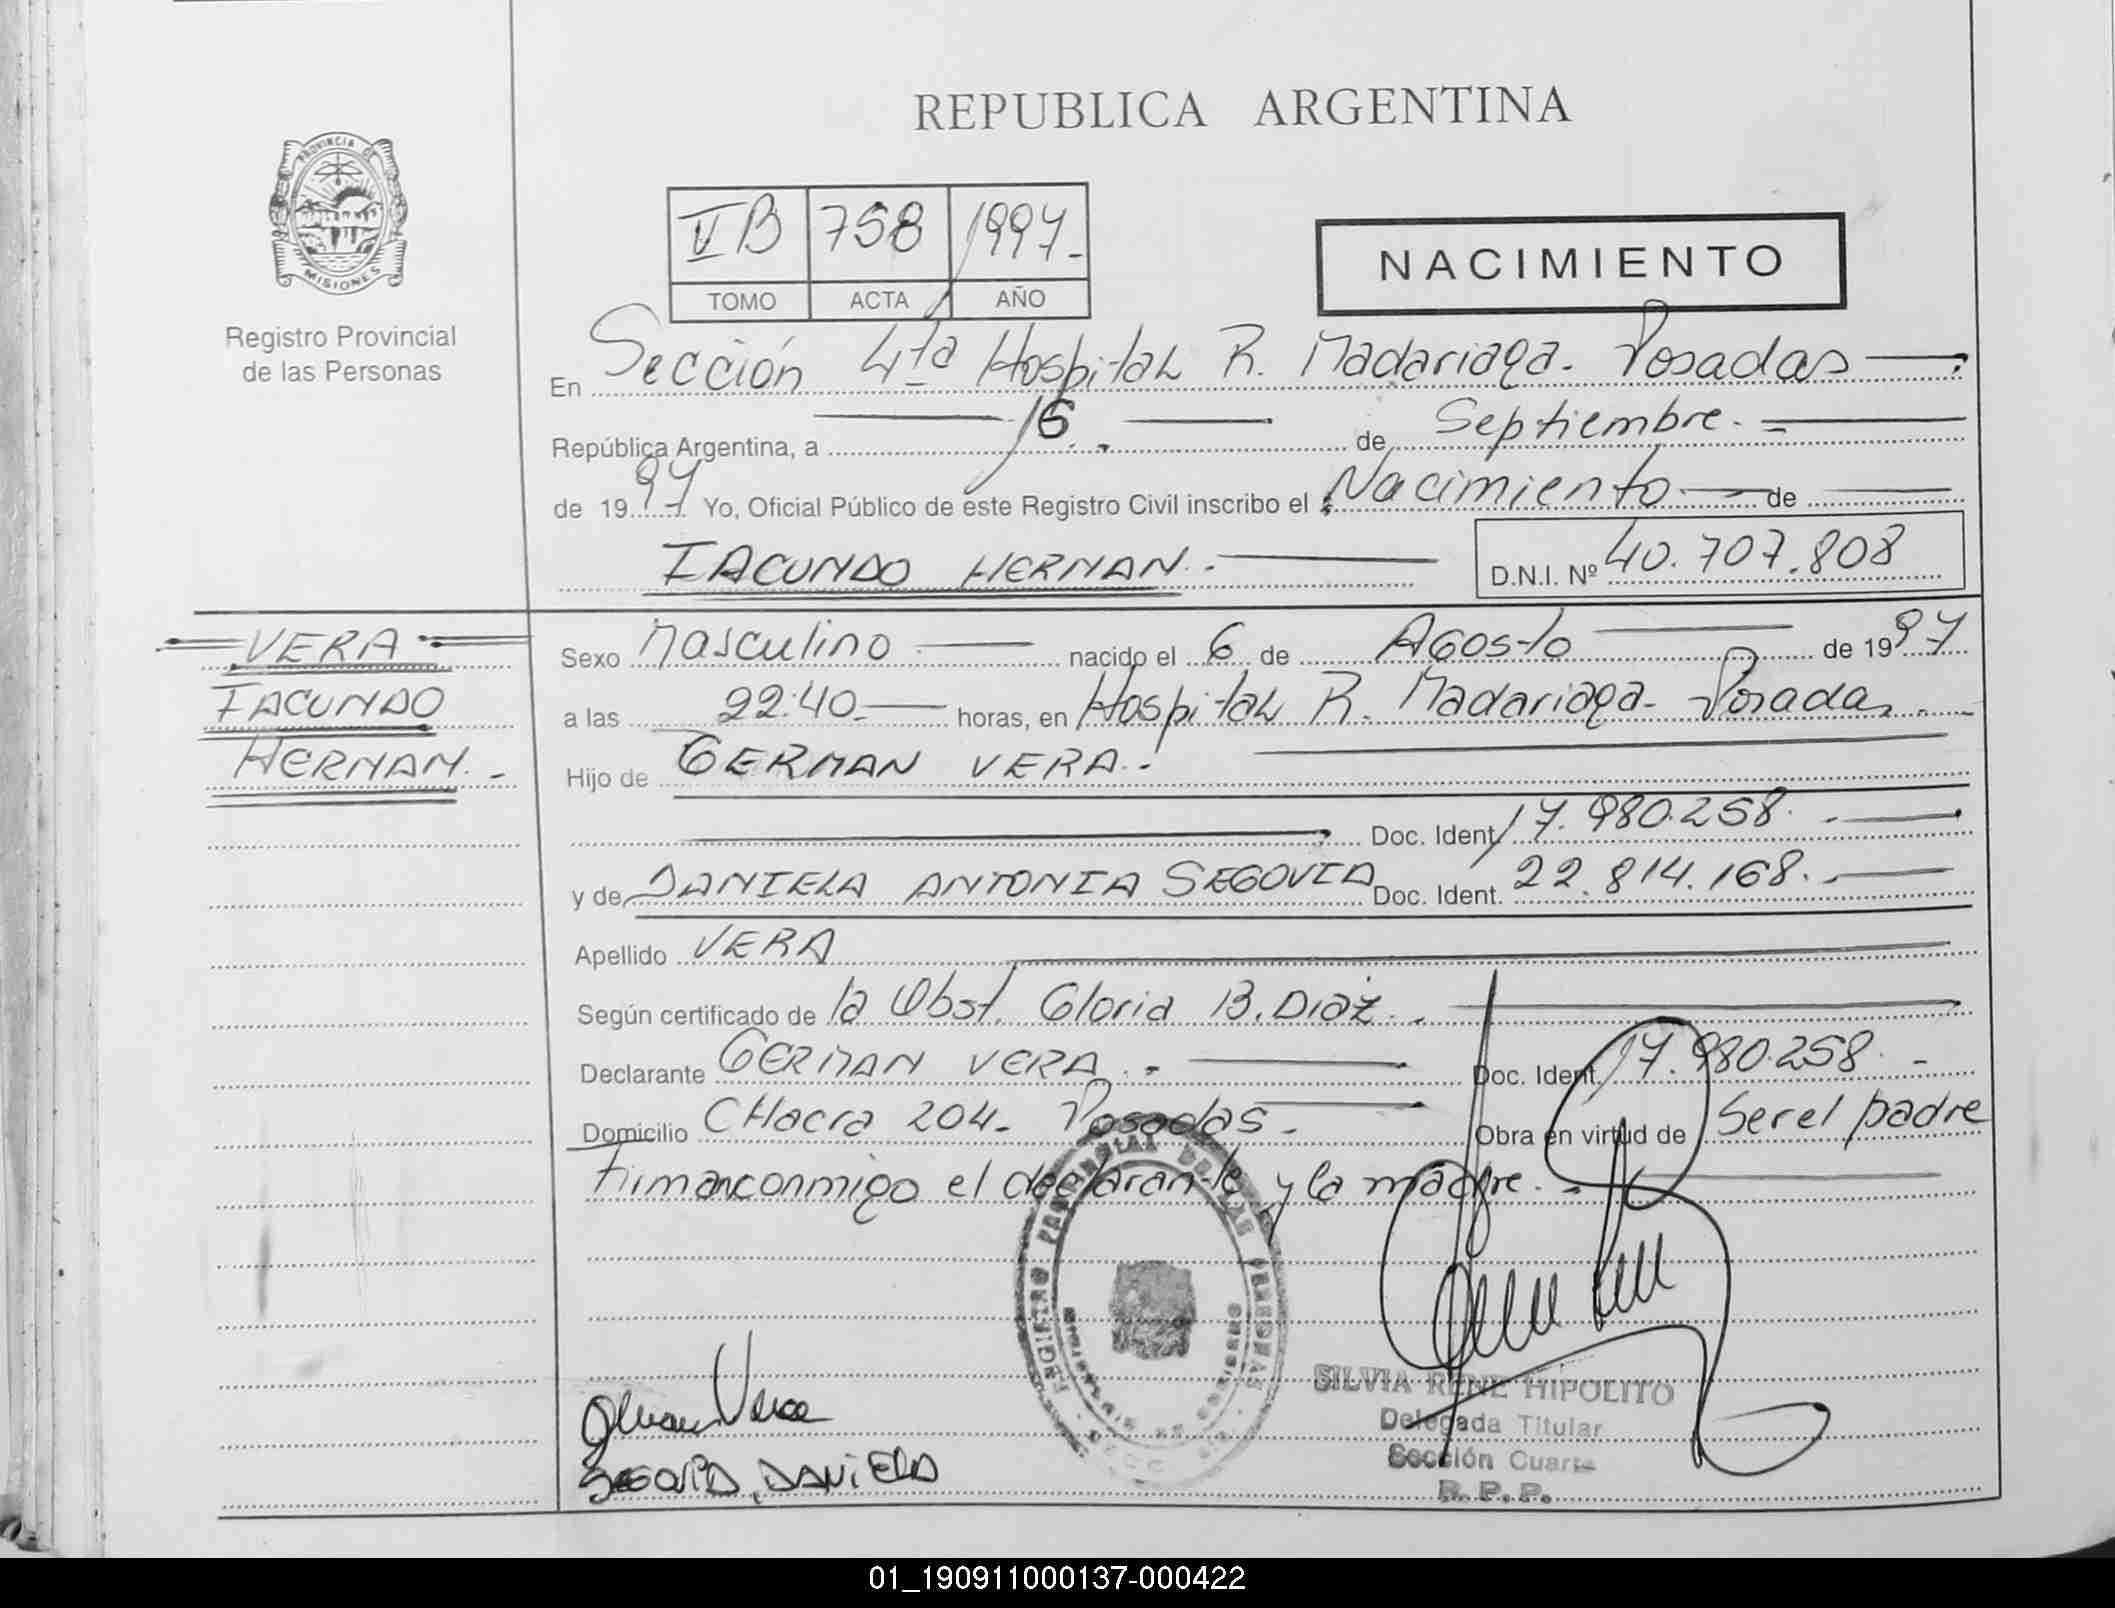 REPUBLICA ARGENTINA
PROVINCIA DE
MISIONES
Registro Provincial
de las Personas
VB 758 1997.-
TOMO ACTA AÑO
NACIMIENTO
En Sección 4ta Hospital R. Madariaga. Posadas
República Argentina, a 16 de Septiembre.-
de 1997 Yo, Oficial Público de este Registro Civil inscribo el Nacimiento de
FACUNDO HERNAN.- D.N.I. Nº 40.707.808
VERA
FACUNDO
HERNAN.-
Sexo Masculino nacido el 6 de Agosto de 1997
a las 22:40.- horas, en Hospital R. Madariaga- Posadas.-
Hijo de GERMAN VERA.-
Doc. Ident. 17.980.258.-
y de DANIELA ANTONIA SEGOVIA Doc. Ident. 22.814.168.-
Apellido VERA
Según certificado de la Obst. Gloria B. Diaz.-
Declarante GERMAN VERA.- Doc. Ident. 17.980.258.-
Domicilio CHacra 204.- Posadas.- Obra en virtud de Ser el padre
Firman conmigo el declarante y la madre.-
REGISTRO PROVINCIAL DE LAS PERSONAS
SILVIA RENE HIPOLITO
Delegada Titular
Sección Cuarta
R. P. P.
Vera
SEGOVIA, DANIELA
01_190911000137-000422